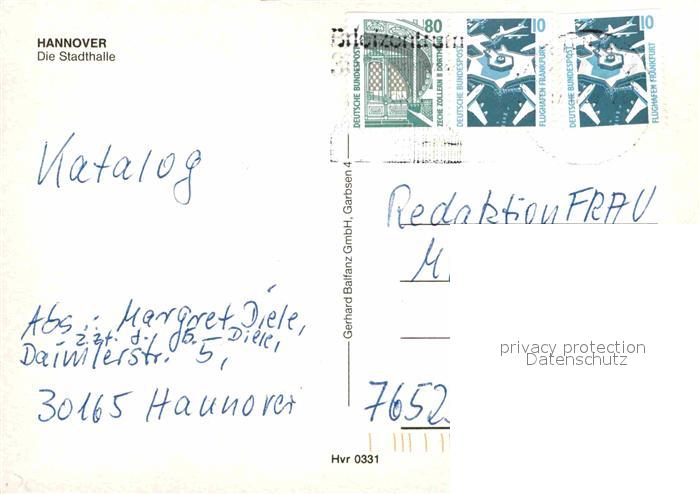 HANNOVER
Die Stadthalle
Briefzentrum
80
DEUTSCHE BUNDESPOST
ZECHE ZOLLERN II DORTMUND
10
DEUTSCHE BUNDESPOST
FLUGHAFEN FRANKFURT
10
DEUTSCHE BUNDESPOST
FLUGHAFEN FRANKFURT
Katalog
Gerhard Balfanz GmbH, Garbsen 4
Redaktion FRAU
M.
Abs.: Margret Diele,
z.Zt. Diele,
Daimlerstr. 5,
30165 Hannover
7652
privacy protection
Datenschutz
Hvr 0331